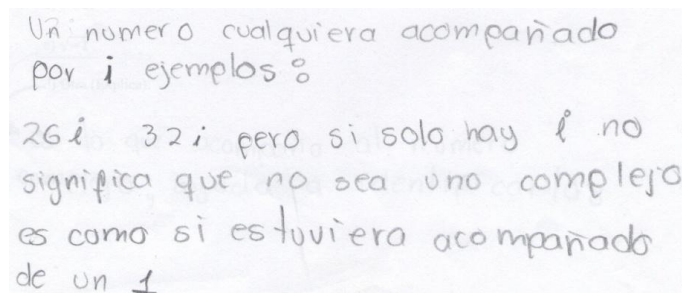 Un numero cualquiera acompañado
por i ejemplos:
26i 32i pero si solo hay i no
significa que no sea uno complejo
es como si estuviera acompañado
de un 1